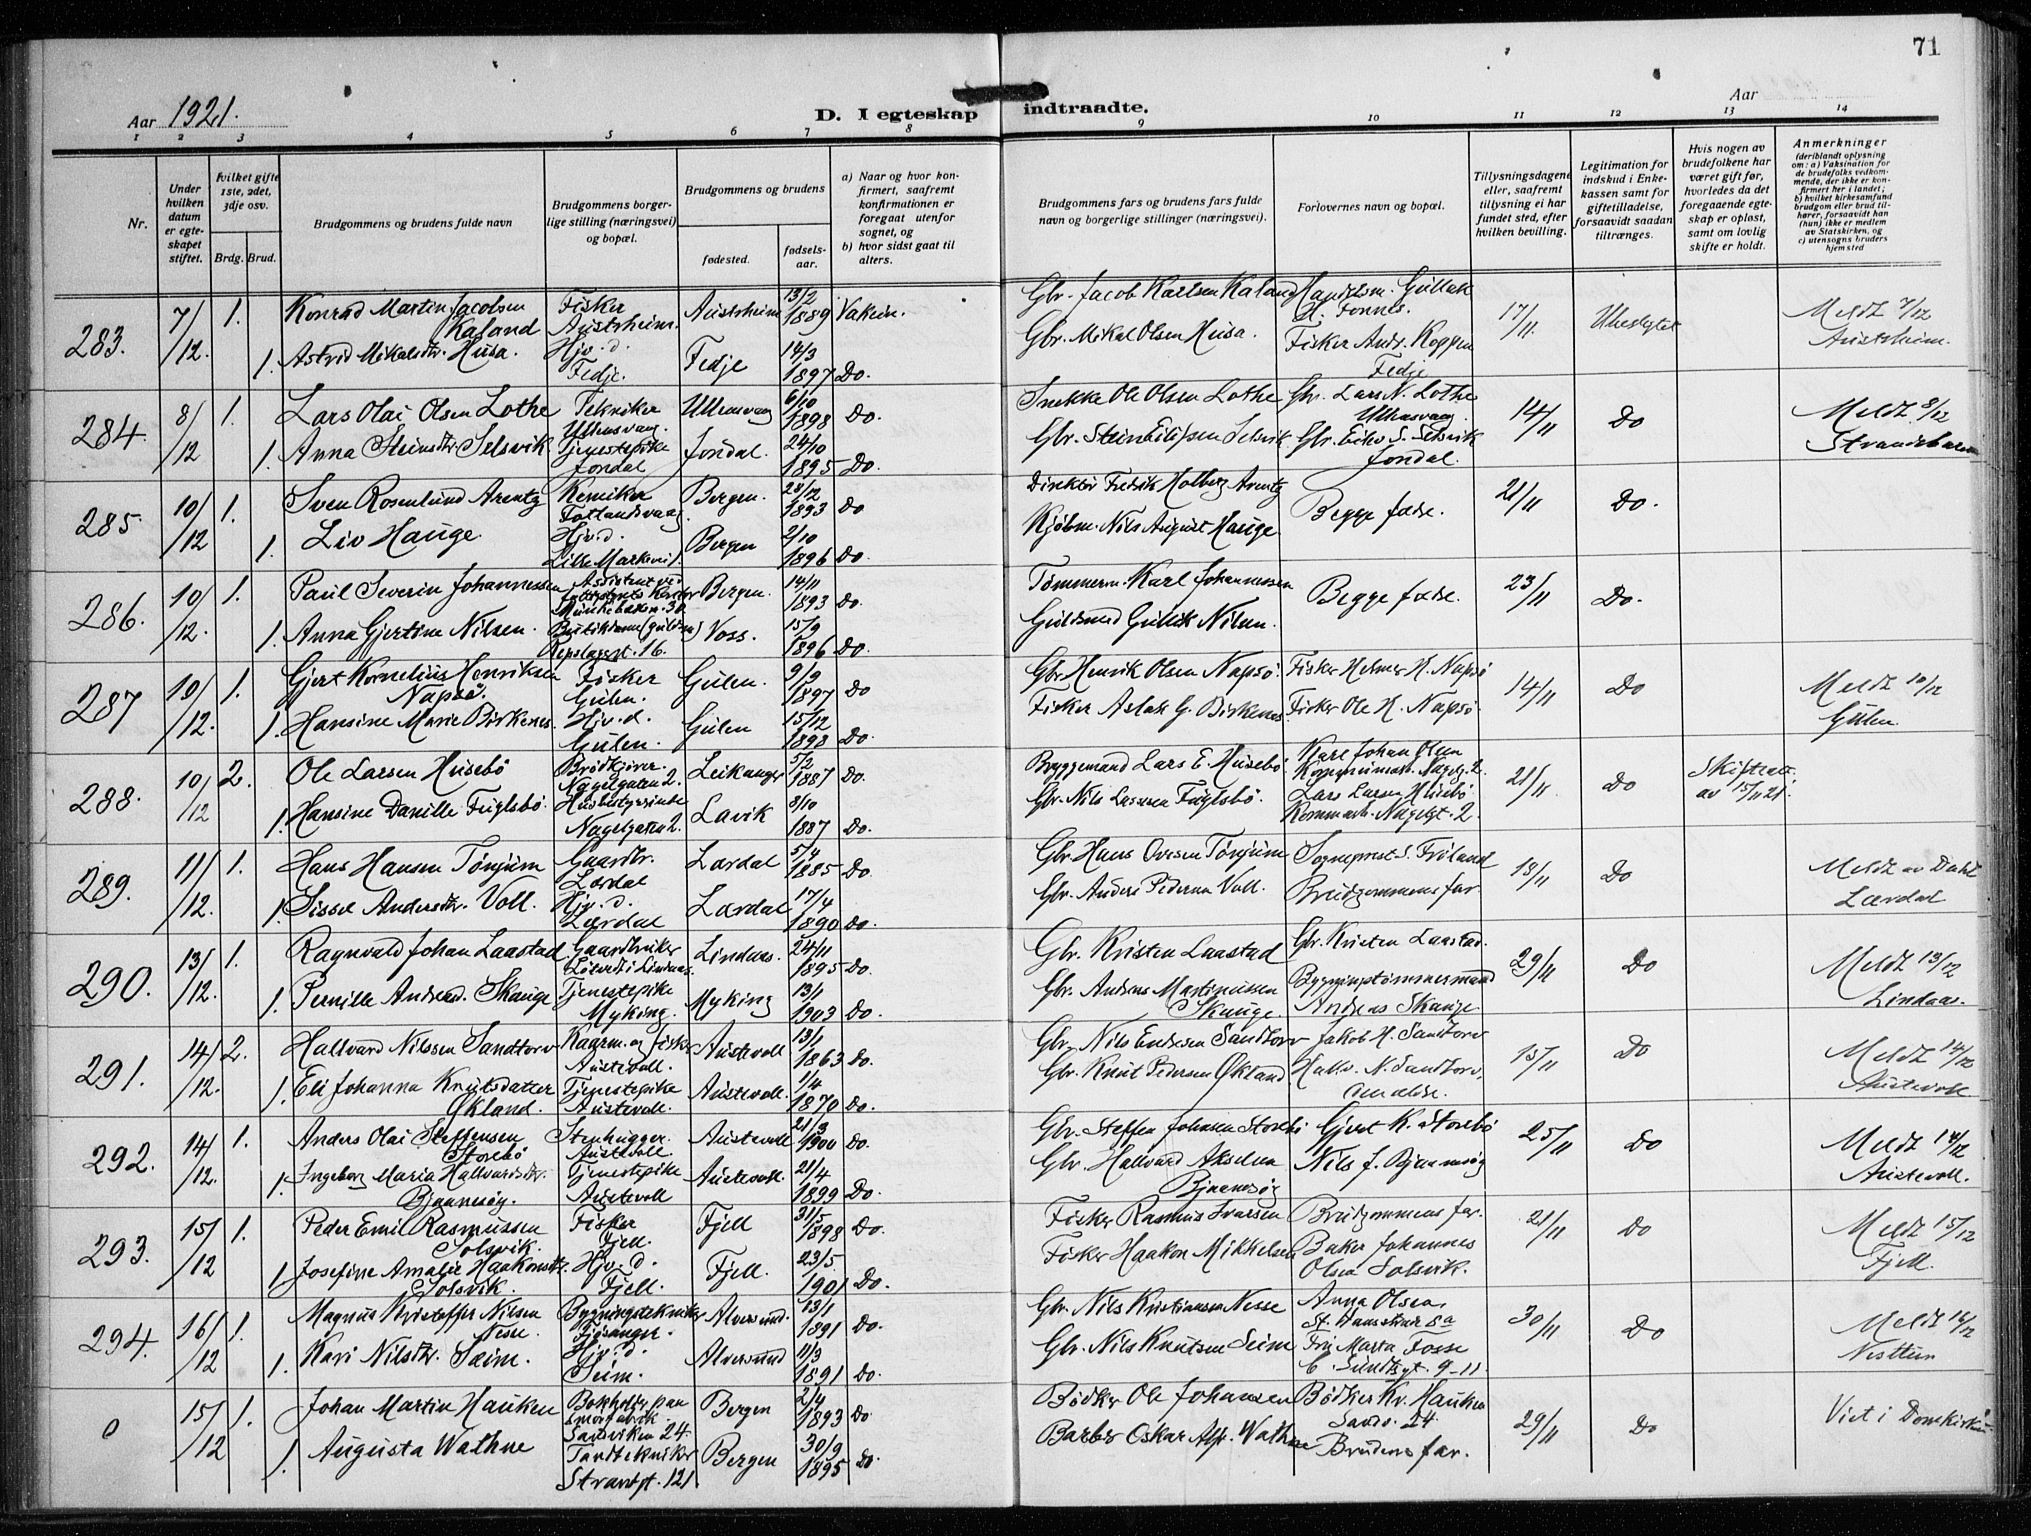 71
Aar 1921.
D. I egteskap indtraadte.
Aar
1 2 3 4 5 6 7 8 9 10 11 12 13 14
Nr.
Under hvilken datum er egteskapet stiftet.
hvilket gifte 1ste, 2det, 3dje osv.
Brdg. Brud.
Brudgommens og brudens fulde navn
Brudgommens borgerlige stilling (næringsvei) og bopæl.
Brudgommens og brudens
fødested.
fødselsaar.
a) Naar og hvor konfirmert, saafremt konfirmationen er foregaat utenfor sognet, og
b) hvor sidst gaat til alters.
Brudgommens fars og brudens fars fulde navn og borgerlige stillinger (næringsvei).
Forlovernes navn og bopæl.
Tillysningsdagene eller, saafremt tillysning ei har fundet sted, efter hvilken bevilling.
Legitimation for indskud i Enkekassen samt for giftetilladelse, forsaavidt saadan tiltrænges.
Hvis nogen av brudefolkene har været gift før, hvorledes da det foregaaende egteskap er opløst, samt om lovlig skifte er holdt.
Anmerkninger
(deriblandt oplysning om: a) Vaksination for de brudefolks vedkommende, der ikke er konfirmert her i landet; b) hvilket kirkesamfund brudgom eller brud tilhører, forsaavidt han (hun) ikke er medlem av Statskirken, og c) utensogns bruders hjemsted
283. 7/12. 1. Konrad Martin Jacobsen Kaland Fisker Austrheim. Austrheim 13/2 1889 Vaksin. Gbr. Jacob Karlsen Kaland Handelsm. Gullak H. Fonnes. 17/11. Ubeslegtet Meldt 7/12 Austrheim.
1. Astrid Mikalsdtr. Husa. Hjv. d. Fedje. Fedje 14/3 1897 Do. Gbr. Mikal Olsen Husa. Fisker Andr. Koppen Fedje
284. 8/12 1. Lars Olai Olsen Lothe Tekniker Ullensvang. Ullensvang 6/10 1898 Do. Snekke Ole Olsen Lothe Gbr. Lars N. Lothe Ullensvang. 14/11 Do Meldt 8/12 Strandebarm
1. Anna Steinsdtr. Selsvik Tjenestepike Jondal Jondal. 24/10 1895 Do. Gbr. Stein Eilifsen Selsvik Gbr. Eilev S. Selsvik Jondal.
285. 10/12 1. Sven Rosenlund Arentz Kemiker Totlandsvaag. Bergen. 28/12 1893 Do Direktør Fredrik Holberg Arentz Begge fædre. 21/11 Do.
1. Liv Hauge Hjv. d. Lille Markevei 1 Bergen 2/10 1896 Do. Kjøbm. Nils August Hauge
286. 10/12. 1. Paul Severin Johannessen Assistent ved Munkebakken. 30. Bergen. 14/11 1893 Do. Tømmerm. Karl Johannessen Begge fædre. 23/11 Do.
1. Anna Gjertine Nilsen. Butikdame (guldsm) Repslagergt. 16. Voss. 15/9 1896 Do. Guldsmed Gullik Nilsen.
287 10/12. 1. Gjert Kornelius Henriksen Napsø. Fisker Gulen. Gulen. 9/9 1897 Do Gbr. Henrik Olsen Napsø. Fisker Helmer H. Napsø 14/11 Do Meldt 10/12 Gulen.
1. Hansine Marie Birkenes. Hjv. d. Gulen. Gulen 15/12 1898 Do. Fisker Aslak G. Birkenes. Fisker Ole H. Napsø.
288. 10/12 2. Ole Larsen Husebø Brødkjører. Nagelgaten 2. Leikanger 5/2 1887 Do. Bryggemand Lars E. Husebø Karl Johan Olsen Kommunearb. Nagelg. 2. 21/11 Do Skifteatt. av 15/11 21.
1. Hansine Danille Fuglsbø. Husbestyrerinde Nagelgaten 2. Lavik 8/10 1887 Do. Gbr. Nils Lassesen Fuglsbø. Lars Larsen Husebø Kommarb. Nagelgt. 2.
289. 11/12. 1. Hans Hansen Tønjum Gaardbr. Lærdal Lærdal 5/4 1885 Do Gbr. Hans Ovesen Tønjum Sogneprest S. Frøland 18/11 Do Meldt av Dahl Lærdal
1. Sissel Andersdtr. Voll. Hjv. d. Lærdal Lærdal 17/4 1890 Do. Gbr. Anders Pedersen Voll. Brudgommens far.
290. 13/12. 1. Ragnvald Johan Laastad Gaardbruker Lindaas. Lindaas. 24/11 1895 Do. Gbr. Kristen Laastad Gbr. Kristen Laastad. 29/11 Do Meldt 13/12 Lindaas.
1. Pernille Andersd. Skauge Tjenestepike Myking. Myking 13/1 1903 Do. Gbr. Andreas Martinussen Skauge. Bygningstømmermand Andreas Skauge
291. 14/12. 2. Hallvard Nilssen Sandtorv Kaarm. og fisker Austevoll. Austevoll 13/1 1863 Do. Gbr. Nils Endresen Sandtorv Jakob H. Sandtorv 15/11 Do Meldt 14/12 Austevoll
1. Eli Johanna Knutsdatter Økland. Tjenestepike Austevoll. Austevoll. 1/4 1870 Do. Gbr. Knut Pedersen Økland Halv. N. Sandtorv,
292. 14/12. 1. Anders Olai Steffensen Storebø Stenhugger. Austevoll Austevoll 21/3 1900 Do. Gbr. Steffen Johnsen Storebø Gjert K. Storebø 25/11 Do Meldt 14/12 Austevoll.
1. Ingeborg Maria Hallvardsdtr. Bjaanesøy. Tjenestepike Austevoll Austevoll. 21/4 1899 Do. Gbr. Hallvard Akselsen Bjaanesøy Nils J. Bjaanesøy
293. 15/12 1. Peder Emil Rasmussen Solsvik. Fisker Fjell. Fjell 31/5 1898 Do. Fisker Rasmus Ivarsen Brudgommens far. 21/11 Do Meldt 15/12 Fjell.
1. Josefine Amalie Haakonsdtr. Solsvik. Hjv. d. Fjell. Fjell. 23/5 1901 Do. Fisker Haakon Mikkelsen Baker Johannes Olsen Solsvik.
294. 16/12 1. Magnus Kristoffer Nilsen Nesse. Bygningstekniker Fjøsanger. Alversund. 13/1 1891 Do. Gbr. Nils Kristiansen Nesse Anna Olsen, St. Hansstræde 5a 30/11 Do Meldt 16/12 Nesttun
1. Kari Nilsdtr. Seim. Hjv. d. Seim. Alversund 11/3 1891 Do. Gbr. Nils Knutsen Seim Fru Marta Fosse C. Sundtsgt. 9-11.
0 15/12 1. Johan Martin Hauken Bokholder paa smørfabrik Sandviken 24. Bergen 2/4 1893 Do Bødker Ole Johansen Bødker Kr. Hauken Sandv. 24. 29/11 Do Viet i Domkirken
1. Augusta Wathne Tandtekniker Strandgt. 121 Bergen 30/9 1895 Do. Barber Oskar Alfr. Wathne Brudens far.